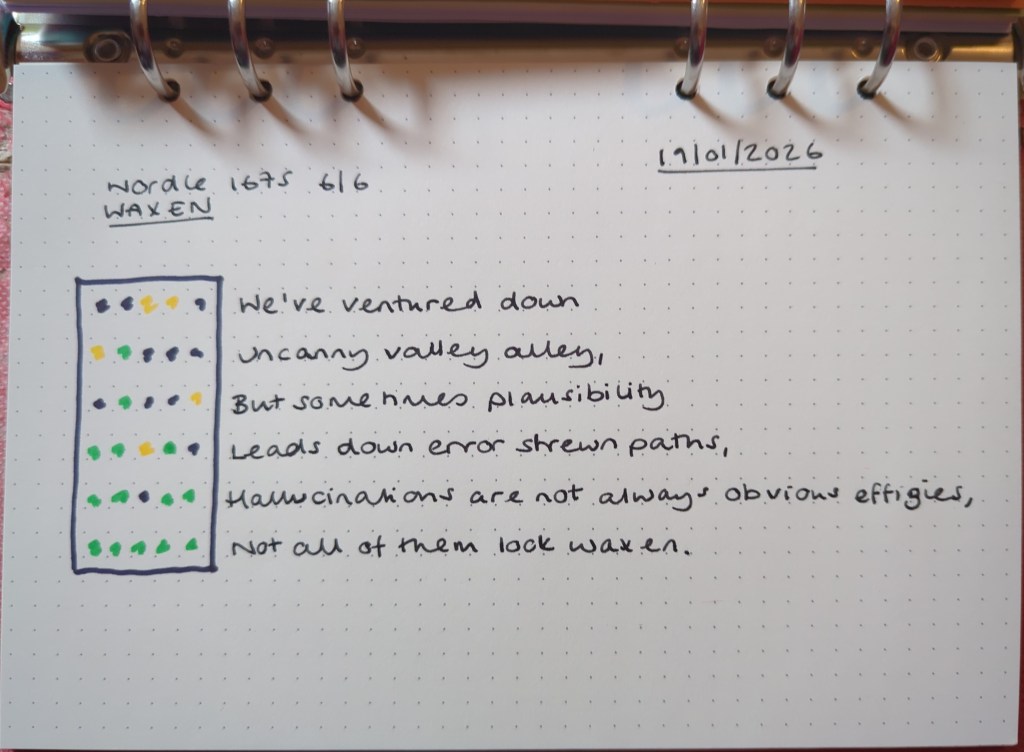 19/01/2026
Wordle 1675 6/6
WAXEN
We've ventured down
uncanny valley alley,
But sometimes plausibility
Leads down error strewn paths,
Hallucinations are not always obvious effigies,
Not all of them look waxen.